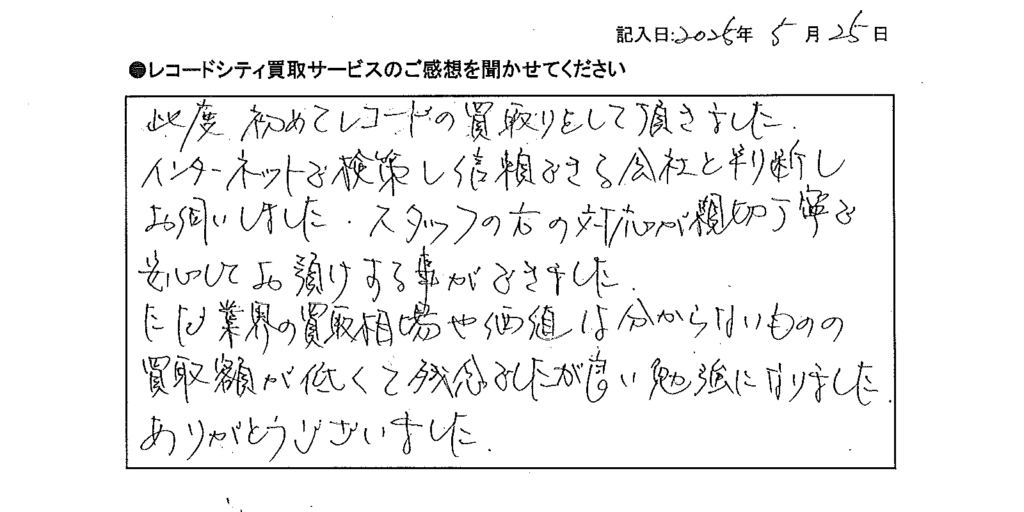 記入日:2025年 5月25日
●レコードシティ買取サービスのご感想を聞かせてください
此度 初めてレコードの買取りをして頂きました.
インターネットで検策し信頼できる会社と判断し
お伺いしました.スタッフの方の対応が親切丁寧で
安心してお預けする事ができました.
ただ業界の買取相場や価値は分からないものの
買取額が低くて残念でしたが良い勉強になりました.
ありがとうございました.